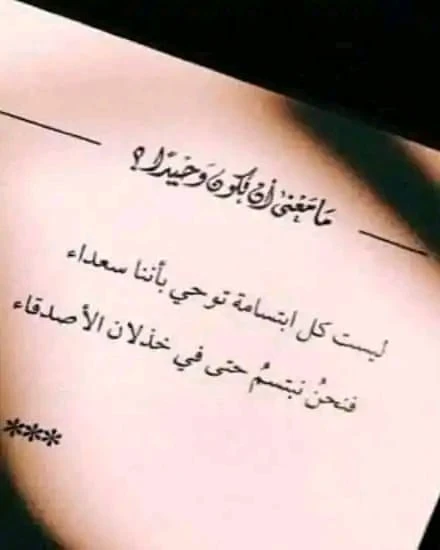 مَا مَعْنىٰ أن نكون وَحيدًا؟
ليست كل ابتسامة توحي بأننا سعداء
فنحنُ نبتسمُ حتى في خذلان الأصدقاء
***